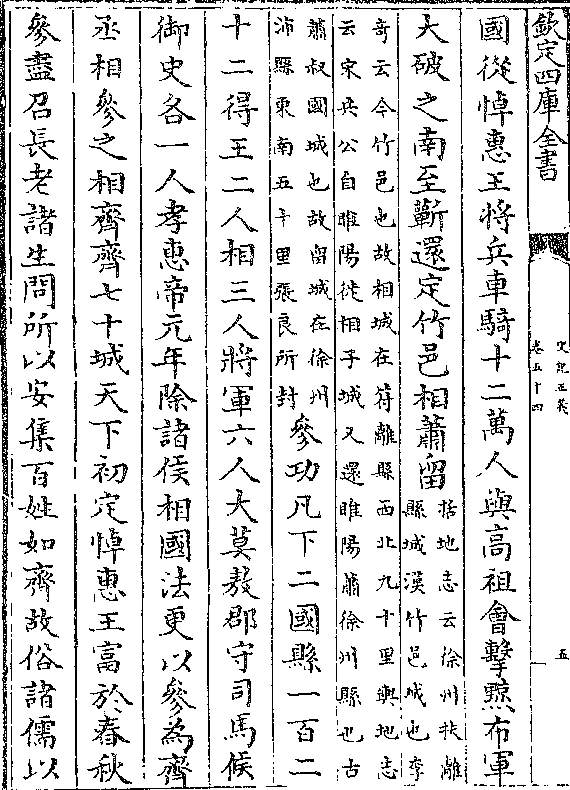 欽定四庫全書
史記正義
卷五十四
五
國從悼惠王將兵車騎十二萬人與高祖會擊黥布軍
大破之南至蘄還定竹邑相蕭留
括地志云徐州扶離
縣城漢竹邑城也李
奇云今竹邑也故相城在苻離縣西北九十里輿地志
云宋共公自睢陽徙相子城又還睢陽蕭徐州縣也古
蕭叔國城也故留城在徐州
沛縣東南五十里張良所封
參功凡下二國縣一百二
十二得王二人相三人將軍六人大莫敖郡守司馬候
御史各一人孝惠帝元年除諸侯相國法更以參為齊
丞相參之相齊齊七十城天下初定悼惠王富於春秋
參盡召長老諸生問所以安集百姓如齊故俗諸儒以